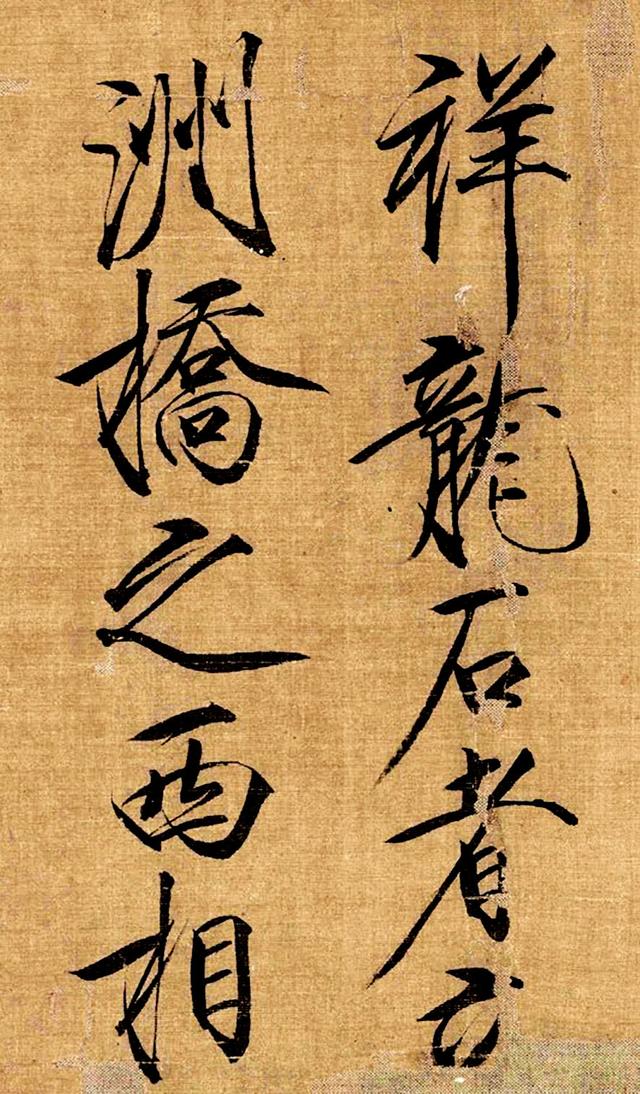 祥龍石者立
洲橋之西相